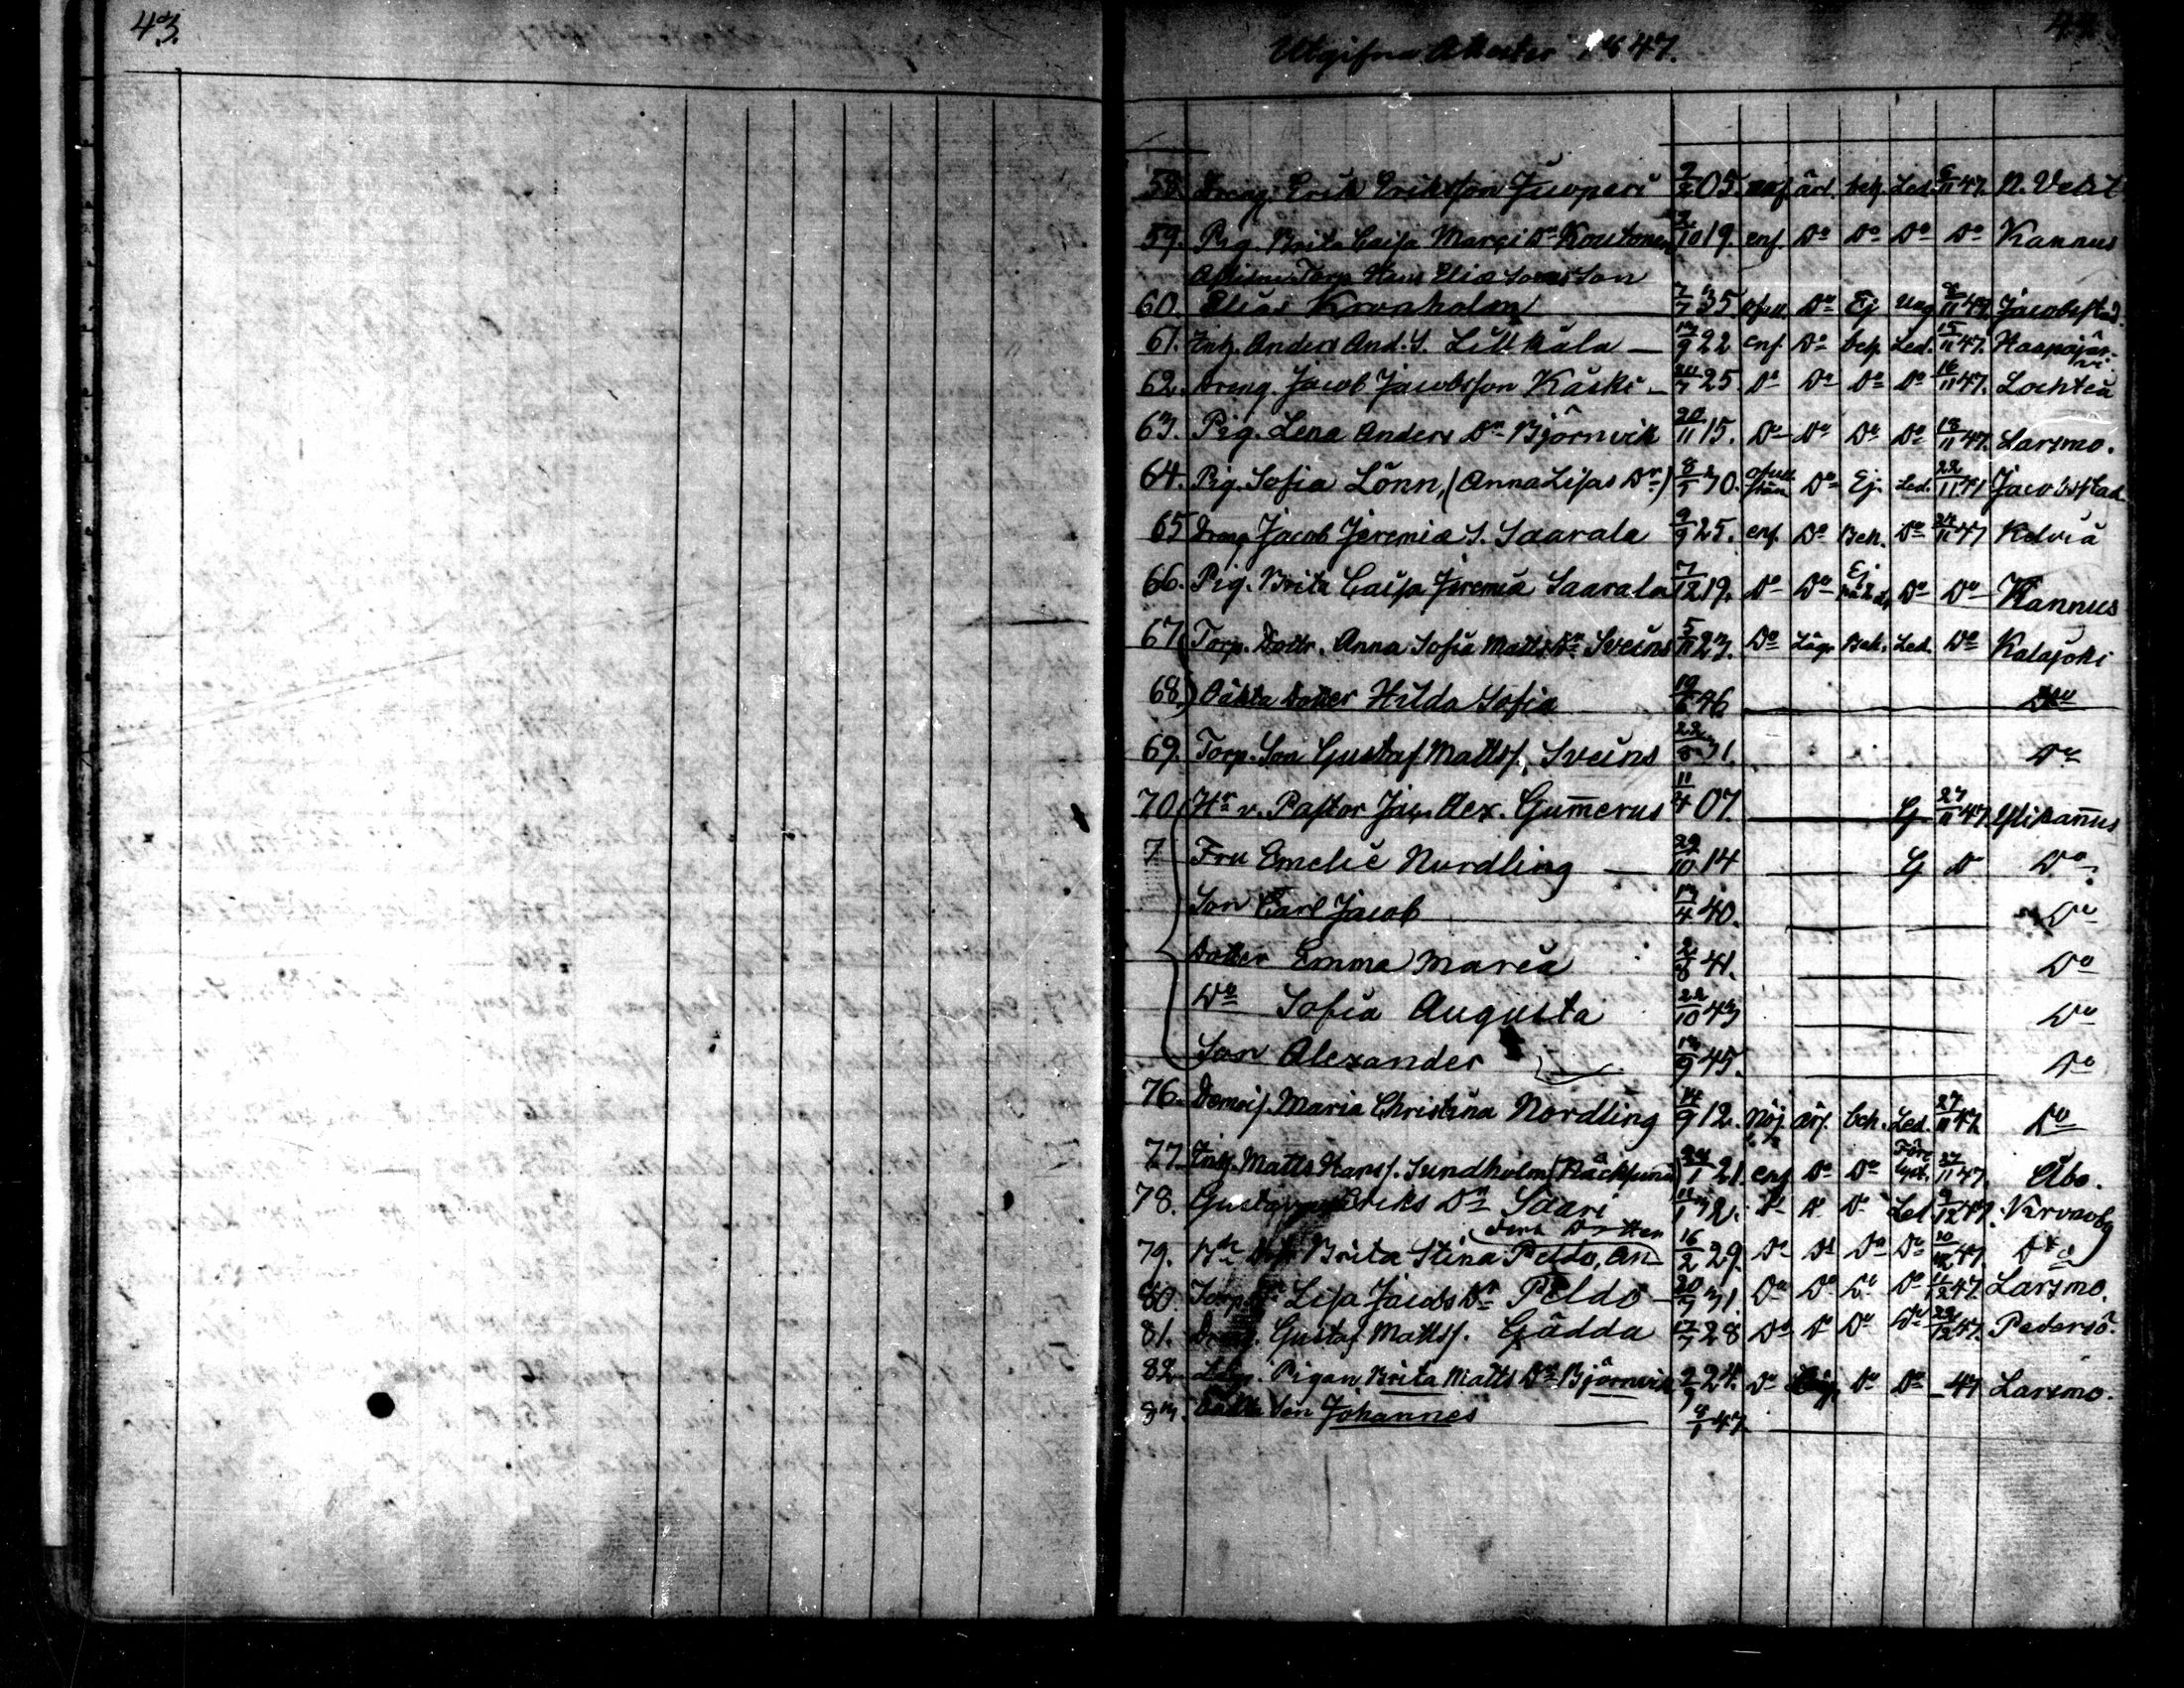 43.
Utgifna Attester 1847.
58. Dreng. Erik Eriksson Juopari 05. enf. ärl. beh. Led. 6/11 47. N. Vetil
59. Pig. Brita Caisa Marci Dr Koutonen 10 19. enf. Do Do Do Do Kannus
Torp. Hans Eliæ Sons Son
60. Elias Kronholm 7/7 35 Do Ej Ung 11 47. Jacobstad.
61. Inh. Anders And. S. Lillkåla — 13/9 22 enf. Do beh. Led. 15/11 47. Haapajärvi
62. Dreng. Jacob Jacobsson Käski — 7 25. Do Do Do Do 16/11 47. Lochteå
63. Pig. Lena Anders Dr Björnvik 20/11 15. Do Do Do Do 18/11 47. Larsmo.
64. Pig. Sofia Lönn, (Anna Lisas Dr) 8/5 30. Do Ej. Led. 22/11 47 Jacobstad
65 Dreng Jacob Jeremiæ S. Saarala 9/9 25. enf. Do Beh. Do 24/11 47 Kelviå
66. Pig. Brita Caisa Jeremiæ Saarala 7/12 19. Do Do Ej Do Do Kannus
67. Torp. Dottr. Anna Sofia Matts Dr Sveins 5/11 23. Do Läg. Beh. Led. Do Kalajoki
68. Oäkta Dotter Hilda Sofia 19/ 46 Do
69. Torp. Son Gustaf Mattss. Sveins 22/8 31. Do
70. Hr v. Pastor Jac. Alex. Gum̄erus 11/4 07. G 27/11 47 Ylikan̄us
7 Fru Emelie Nordling — 29/10 14 G Do Do
Son Carl Jacob 13/4 40. Do
Dotter Emma Maria 2/8 41. Do
Do Sofia Augusta 22/10 43 Do
Son Alexander 13/9 45. Do
76. Demois. Maria Christina Nordling 14/9 12. Nöj. ärl. beh. Led. 27/11 47 Do
77. Inh. Matts Hanss. Sundholm (Bäcklund) 24/1 21. enf Do Do 27/11 47. Åbo.
78. Eriks Dr Saari 1 32. Do Do Do Led. 9/12 47. Kronoby
dera Dotter
79. Brita Stina Peldo, An- 16/2 29. Do Do Do Do 10/12 47 Do
80. Torp. Lisa Jacobs Dr Peldo 20/7 31. Do Do Do Do 11/12 47. Larsmo.
81. Dreng. Gustaf Mattss. Gädda 17/7 28 Do Do Do Do 22/12 47. Pedersö.
82. Pigan Brita Matts Dr Björnvik 2/9 24. Do Läg. Do Do — 47 Larsmo.
83. Oäkta Son Johannes — 8/1 47.